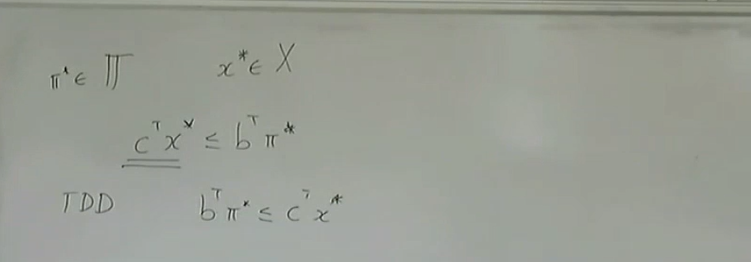 π* ∈ Π x* ∈ X
cᵀx* ≤ bᵀπ*
TDD bᵀπ* ≤ cᵀx*